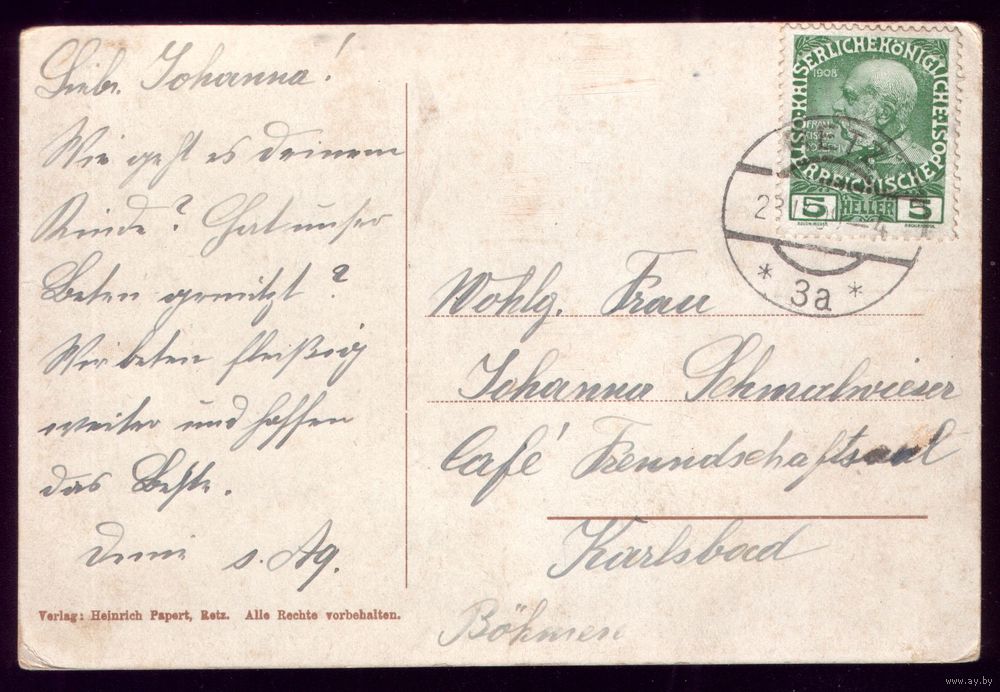 Liebe Johanna!
Wie geht es deinem
Kinde? Hat unser
Beten genützt?
Wir beten fleißig
weiter und hoffen
das Beste.
Deine s. Ag.
Verlag: Heinrich Papert, Retz. Alle Rechte vorbehalten.
KAISERLICHE KÖNIGLICHE
ÖSTERREICHISCHE POST
1908
5 HELLER 5
RETZ
* 3a *
Wohlg. Frau
Johanna Schmalwieser
Café Freundschaftsaal
Karlsbad
Böhmen
www.ay.by